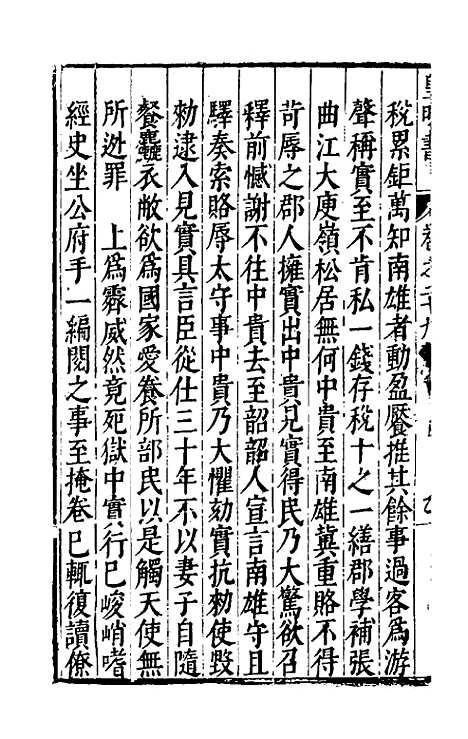 皇明書 卷之二十九
稅累鉅萬知南雄者動盈饜推其餘事過客爲游
聲稱實至不肯私一錢存稅十之一繕郡學補張
曲江大庾嶺松居無何中貴至南雄冀重賂不得
苛辱之郡人擁實出中貴見實得民乃大驚欲召
釋前憾謝不往中貴去至韶韶人宣言南雄守且
驛奏索賂辱太守事中貴乃大懼劾實抗勅使毀
勅逮入見實具言臣從仕三十年不以妻子自隨
餐麤衣敝欲爲國家愛養所部民以是觸天使無
所逃罪 上爲霽威然竟死獄中實行已峻峭嗜
經史坐公府手一編閱之事至掩卷已輒復讀僚